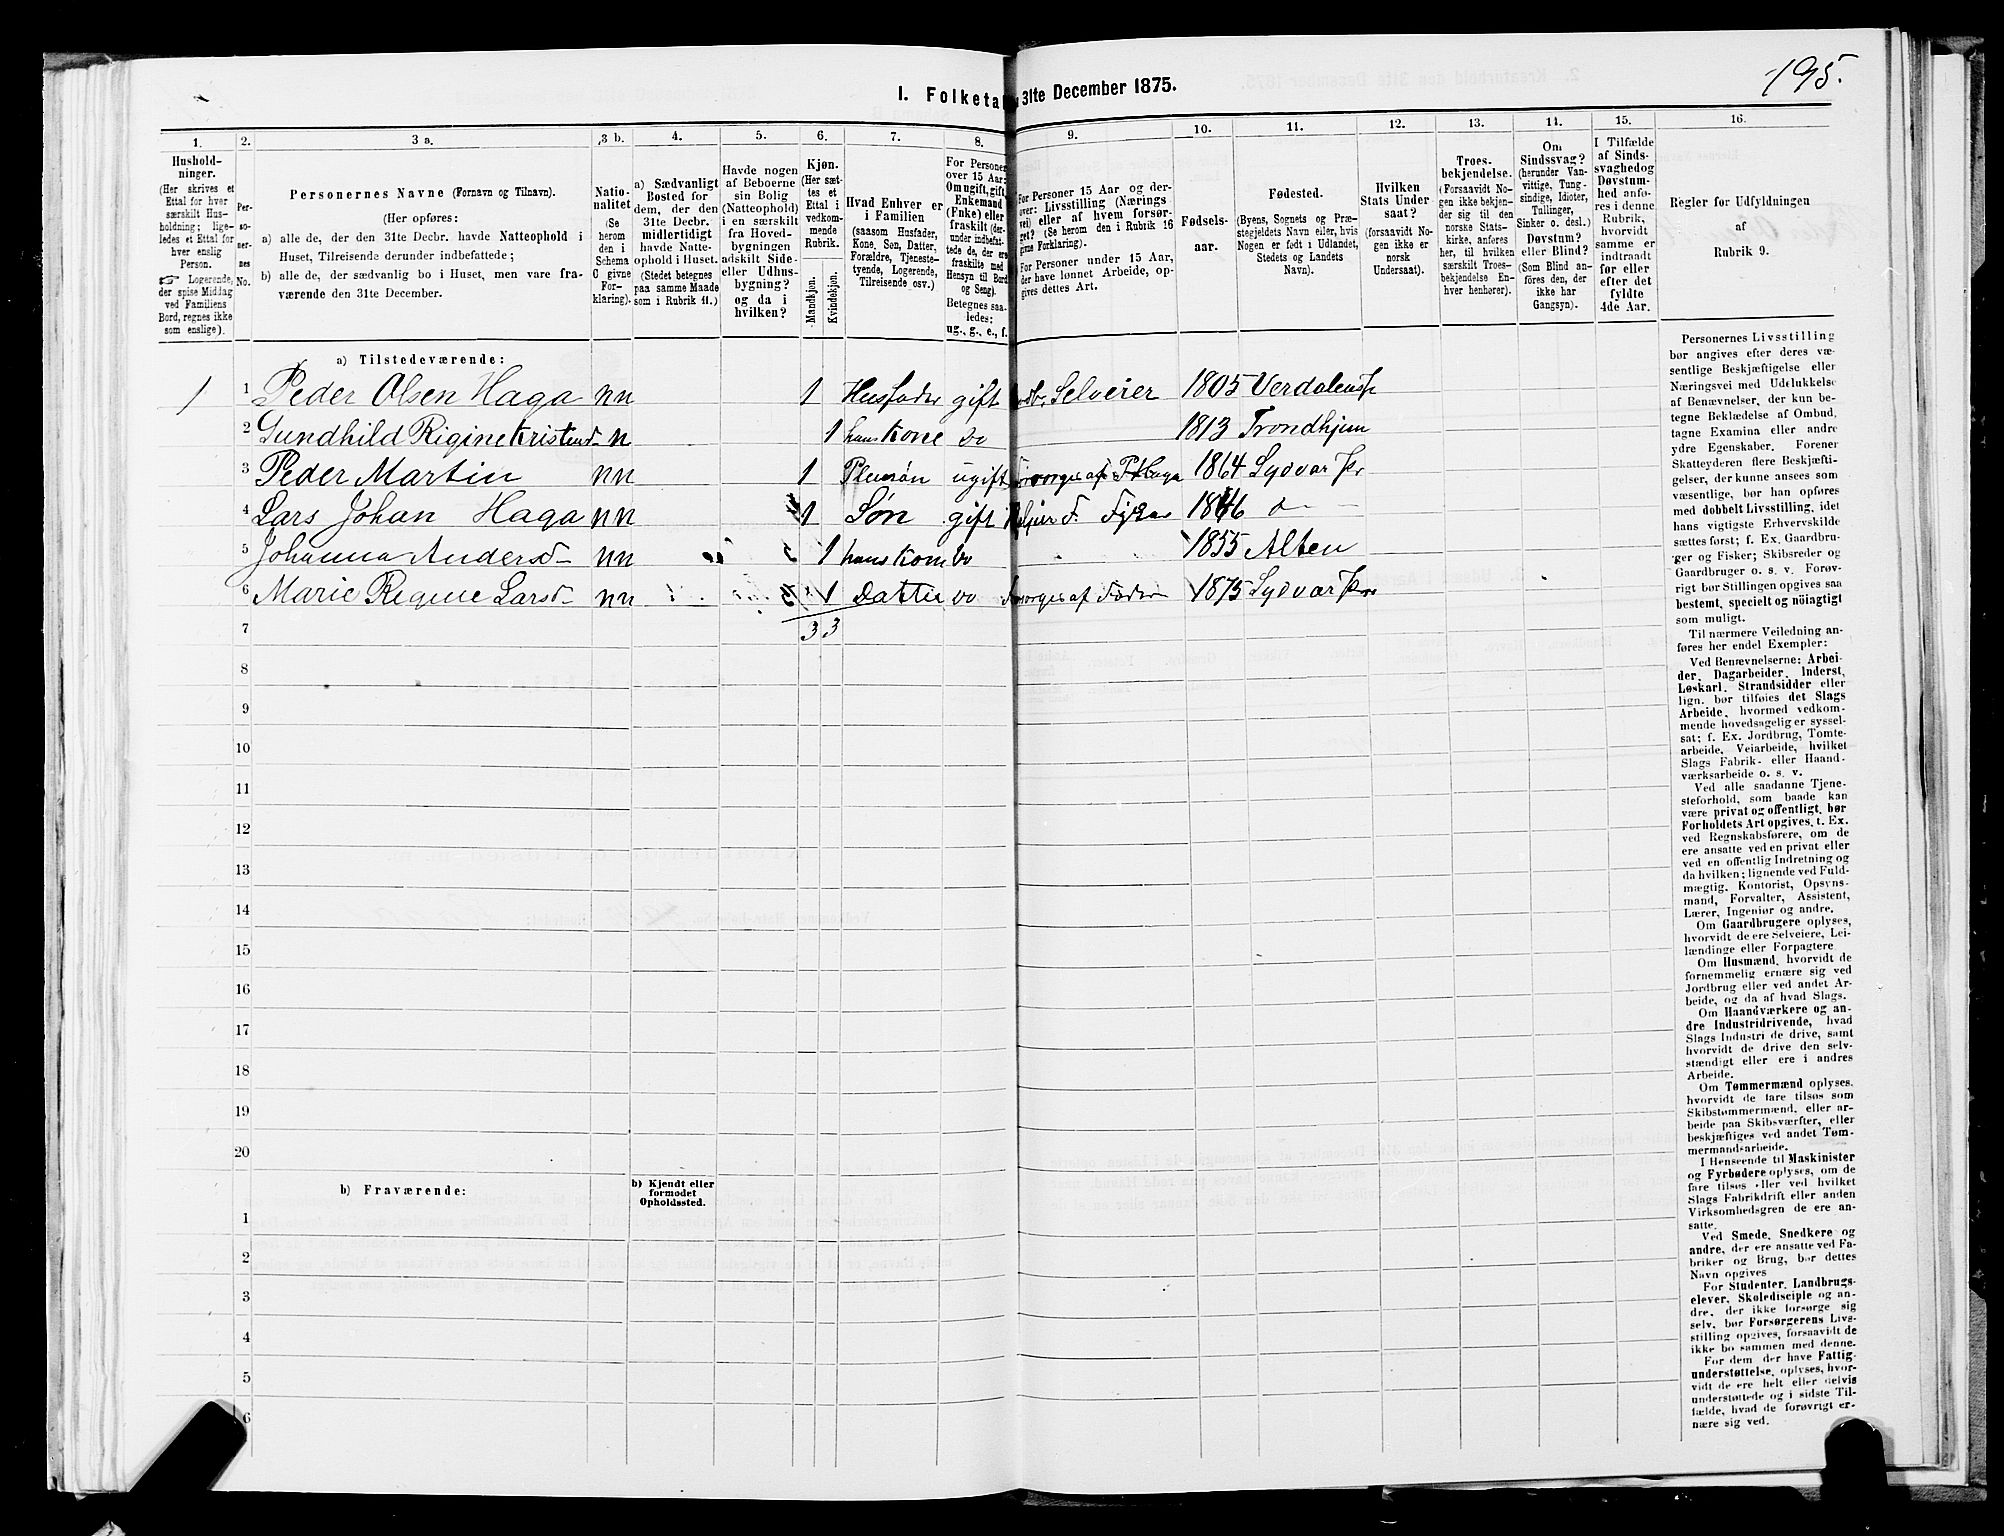 195.
I. Folketa 31te December 1875.
1. 2. 3 a. 3 b. 4. 5. 6. 7. 8. 9. 10. 11. 12. 13. 14. 15. 16.
Hushold-
ninger.
(Her skrives et
Ettal for hver
særskilt Hus-
holdning; lige-
ledes et Ettal for
hver enslig
Person.
☞ Logerende,
der spise Middag
ved Familiens
Bord, regnes ikke
som enslige).
Per-
so-
ner-
nes
No.
Personernes Navne (Fornavn og Tilnavn).
(Her opføres:
a) alle de, der den 31te Decbr. havde Natteophold i
Huset, Tilreisende derunder indbefattede;
b) alle de, der sædvanlig bo i Huset, men vare fra-
værende den 31te December.
Natio-
nalitet
(Se
herom
den i
Schema
C givne
For-
klaring).
a) Sædvanligt
Bosted for
dem, der den
31te Decbr.
midlertidigt
havde Natte-
ophold i Huset.
(Stedet betegnes
paa samme Maade
som i Rubrik 11.)
Havde nogen
af Beboerne
sin Bolig
(Natteophold)
i en særskilt
fra Hoved-
bygningen
adskilt Side-
eller Udhus-
bygning?
og da i
hvilken?
Kjøn.
(Her sæt-
tes et
Ettal i
vedkom-
mende
Rubrik.
Mandkjøn.
Kvindekjøn.
Hvad Enhver er
i Familien
(saasom Husfader,
Kone, Søn, Datter,
Forældre, Tjeneste-
tyende, Logerende,
Tilreisende osv.)
For Personer
over 15 Aar:
Om ugift, gift,
Enkemand
(Enke) eller
fraskilt (der-
under indbefat-
tede de, der ere
fraskilte med
Hensyn til Bord
og Seng).
Betegnes saa-
ledes:
ug., g., e., f.
For Personer 15 Aar og der-
over: Livsstilling (Nærings
vei) eller af hvem forsør-
get? (Se herom den i Rubrik 16
givne Forklaring).
For Personer under 15 Aar,
der have lønnet Arbeide, op-
gives dettes Art.
Fødsels-
aar.
Fødested.
(Byens, Sognets og Præ-
stegjeldets Navn eller, hvis
Nogen er født i Udlandet,
Stedets og Landets
Navn).
Hvilken
Stats Under
saat?
(forsaavidt No-
gen ikke er
norsk
Undersaat).
Troes-
bekjendelse.
(Forsaavidt No-
gen ikke bekjen-
der sig til den
norske Stats-
kirke, anføres
her, til hvilken
særskilt Troes-
bekjendelse En-
hver henhører).
Om
Sindssvag?
(herunder Van-
vittige, Tung-
sindige, Idioter,
Tullinger,
Sinker o. desl.)
Døvstum?
eller Blind?
(Som Blind an-
føres den, der
ikke har
Gangsyn).
I Tilfælde
af Sinds-
svaghed og
Døvstum-
hed anfø-
res i denne
Rubrik,
hvorvidt
samme er
indtraadt
før eller
efter det
fyldte
4de Aar.
Regler for Udfyldningen
af
Rubrik 9.
a) Tilstedeværende:
1 1 Peder Olsen Haga nn 1 Husfader gift Selveier 1805 Verdalens
2 Gundhild Rigine Kristend. n 1 hans Kone do 1813 Trondhjem
3 Peder Martin nn 1 Pleiesøn ugift af P Haga 1864 Sydvar Pr
4 Lars Johan Haga nn 1 Søn gift F. 1846 do
5 Johanna Andersd nn 1 hans Kone do 1855 Alten
6 Marie Regine Larsd nn 1 Datter do af Fader 1875 Sydvar Pr
7 3 3
8
9
10
11
12
13
14
15
16
17
18
19
20
b) Fraværende:
b) Kjendt eller
formodet
Opholdssted.
1
2
3
4
5
6
Personernes Livsstilling
bør angives efter deres væ-
sentlige Beskjæftigelse eller
Næringsvei med Udelukkelse
af Benævnelser, der kun be-
tegne Beklædelse af Ombud,
tagne Examina eller andre
ydre Egenskaber. Forener
Skatteyderen flere Beskjæfti-
gelser, der kunne ansees som
væsentlige, bør han opføres
med dobbelt Livsstilling, idet
hans vigtigste Erhvervskilde
sættes først; f. Ex. Gaardbru-
ger og Fisker; Skibsreder og
Gaardbruger o. s. v. Forøv-
rigt bør Stillingen opgives saa
bestemt, specielt og nöiagtigt
som muligt.
Til nærmere Veiledning an-
føres her endel Exempler:
Ved Benævnelserne: Arbei-
der, Dagarbeider, Inderst,
Løskarl, Strandsidder eller
lign. bør tilføies det Slags
Arbeide, hvormed vedkom-
mende hovedsagelig er syssel-
sat; f. Ex. Jordbrug, Tomte-
arbeide, Veiarbeide, hvilket
Slags Fabrik- eller Haand-
værksarbeide o. s. v.
Ved alle saadanne Tjene-
steforhold, som baade kan
være privat og offentligt, bør
Forholdets Art opgives, t. Ex.
ved Regnskabsførere, om de
ere ansatte ved en privat eller
ved en offentlig Indretning og
da hvilken; lignende ved Fuld-
mægtig, Kontorist, Opsyns-
mand, Forvalter, Assistent,
Lærer, Ingeniør og andre.
Om Gaardbrugere oplyses,
hvorvidt de ere Selveiere, Lei-
lændinge eller Forpagtere
Om Husmænd, hvorvidt de
fornemmelig ernære sig ved
Jordbrug eller ved andet Ar-
beide, og da af hvad Slags.
Om Haandværkere og an-
dre Industridrivende, hvad
Slags Industri de drive, samt
hvorvidt de drive den selv-
stændigt eller ere i andres
Arbeide.
Om Tømmermænd oplyses,
hvorvidt de fare tilsøs som
Skibstømmermænd, eller ar-
beide paa Skibsværfter, eller
beskjæftiges ved andet Tøm-
mermandsarbeide.
I Henseende til Maskinister
og Fyrbødere oplyses, om de
fare tilsøs eller ved hvilket
Slags Fabrikdrift eller anden
Virksomhedsgren de ere an-
satte.
Ved Smede, Snedkere og
andre, der ere ansatte ved Fa-
briker og Brug, bør dettes
Navn opgives
For Studenter, Landbrugs-
elever, Skoledisciple og an-
dre, der ikke forsørge sig
selv, bør Forsørgerens Livs-
stilling opgives, forsaavidt de
ikke bo sammen med denne.
For dem der have Fattig-
understøttelse, oplyses, hvor-
vidt de ere helt eller delvis
understøttede og i sidste Til-
fælde, hvad de forøvrigt er-
nære sig ved.